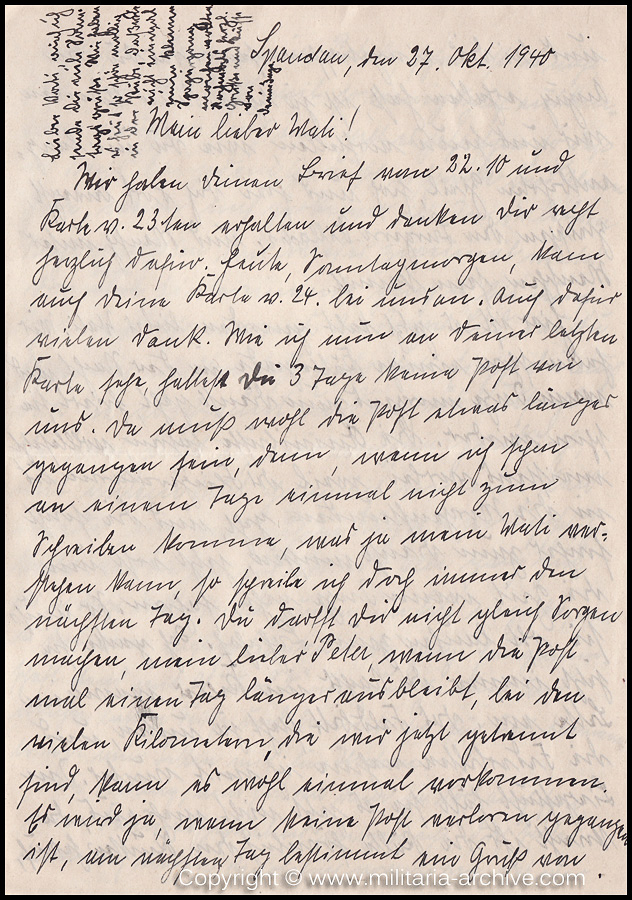 Spandau, den 27. Okt. 1940
Mein lieber Vati!
Wir haben Deinen Brief vom 22.10 und
Karte v. 23ten erhalten und danken Dir recht
herzlich dafür. Heute, Sonntagmorgen, kam
auch Deine Karte v. 24. bei uns an. Auch dafür
vielen Dank. Wie ich nun an Deiner letzten
Karte sehe, hattest Du 3 Tage keine Post von
uns. Da muß wohl die Post etwas länger
gegangen sein, denn, wenn ich schon
an einem Tage einmal nicht zum
Schreiben komme, was ja mein Vati ver-
stehen kann, so schreibe ich doch immer den
nächsten Tag. Du darfst Dir nicht gleich Sorgen
machen, mein lieber Peter, wenn die Post
mal einen Tag länger ausbleibt, bei den
vielen Kilometern, die wir jetzt getrennt
sind, kann es wohl einmal vorkommen.
Es wird ja, wenn keine Post verloren gegangen
ist, am nächsten Tag bestimmt ein Gruß von
Lieber Vati
Copyright © www.militaria-archive.com